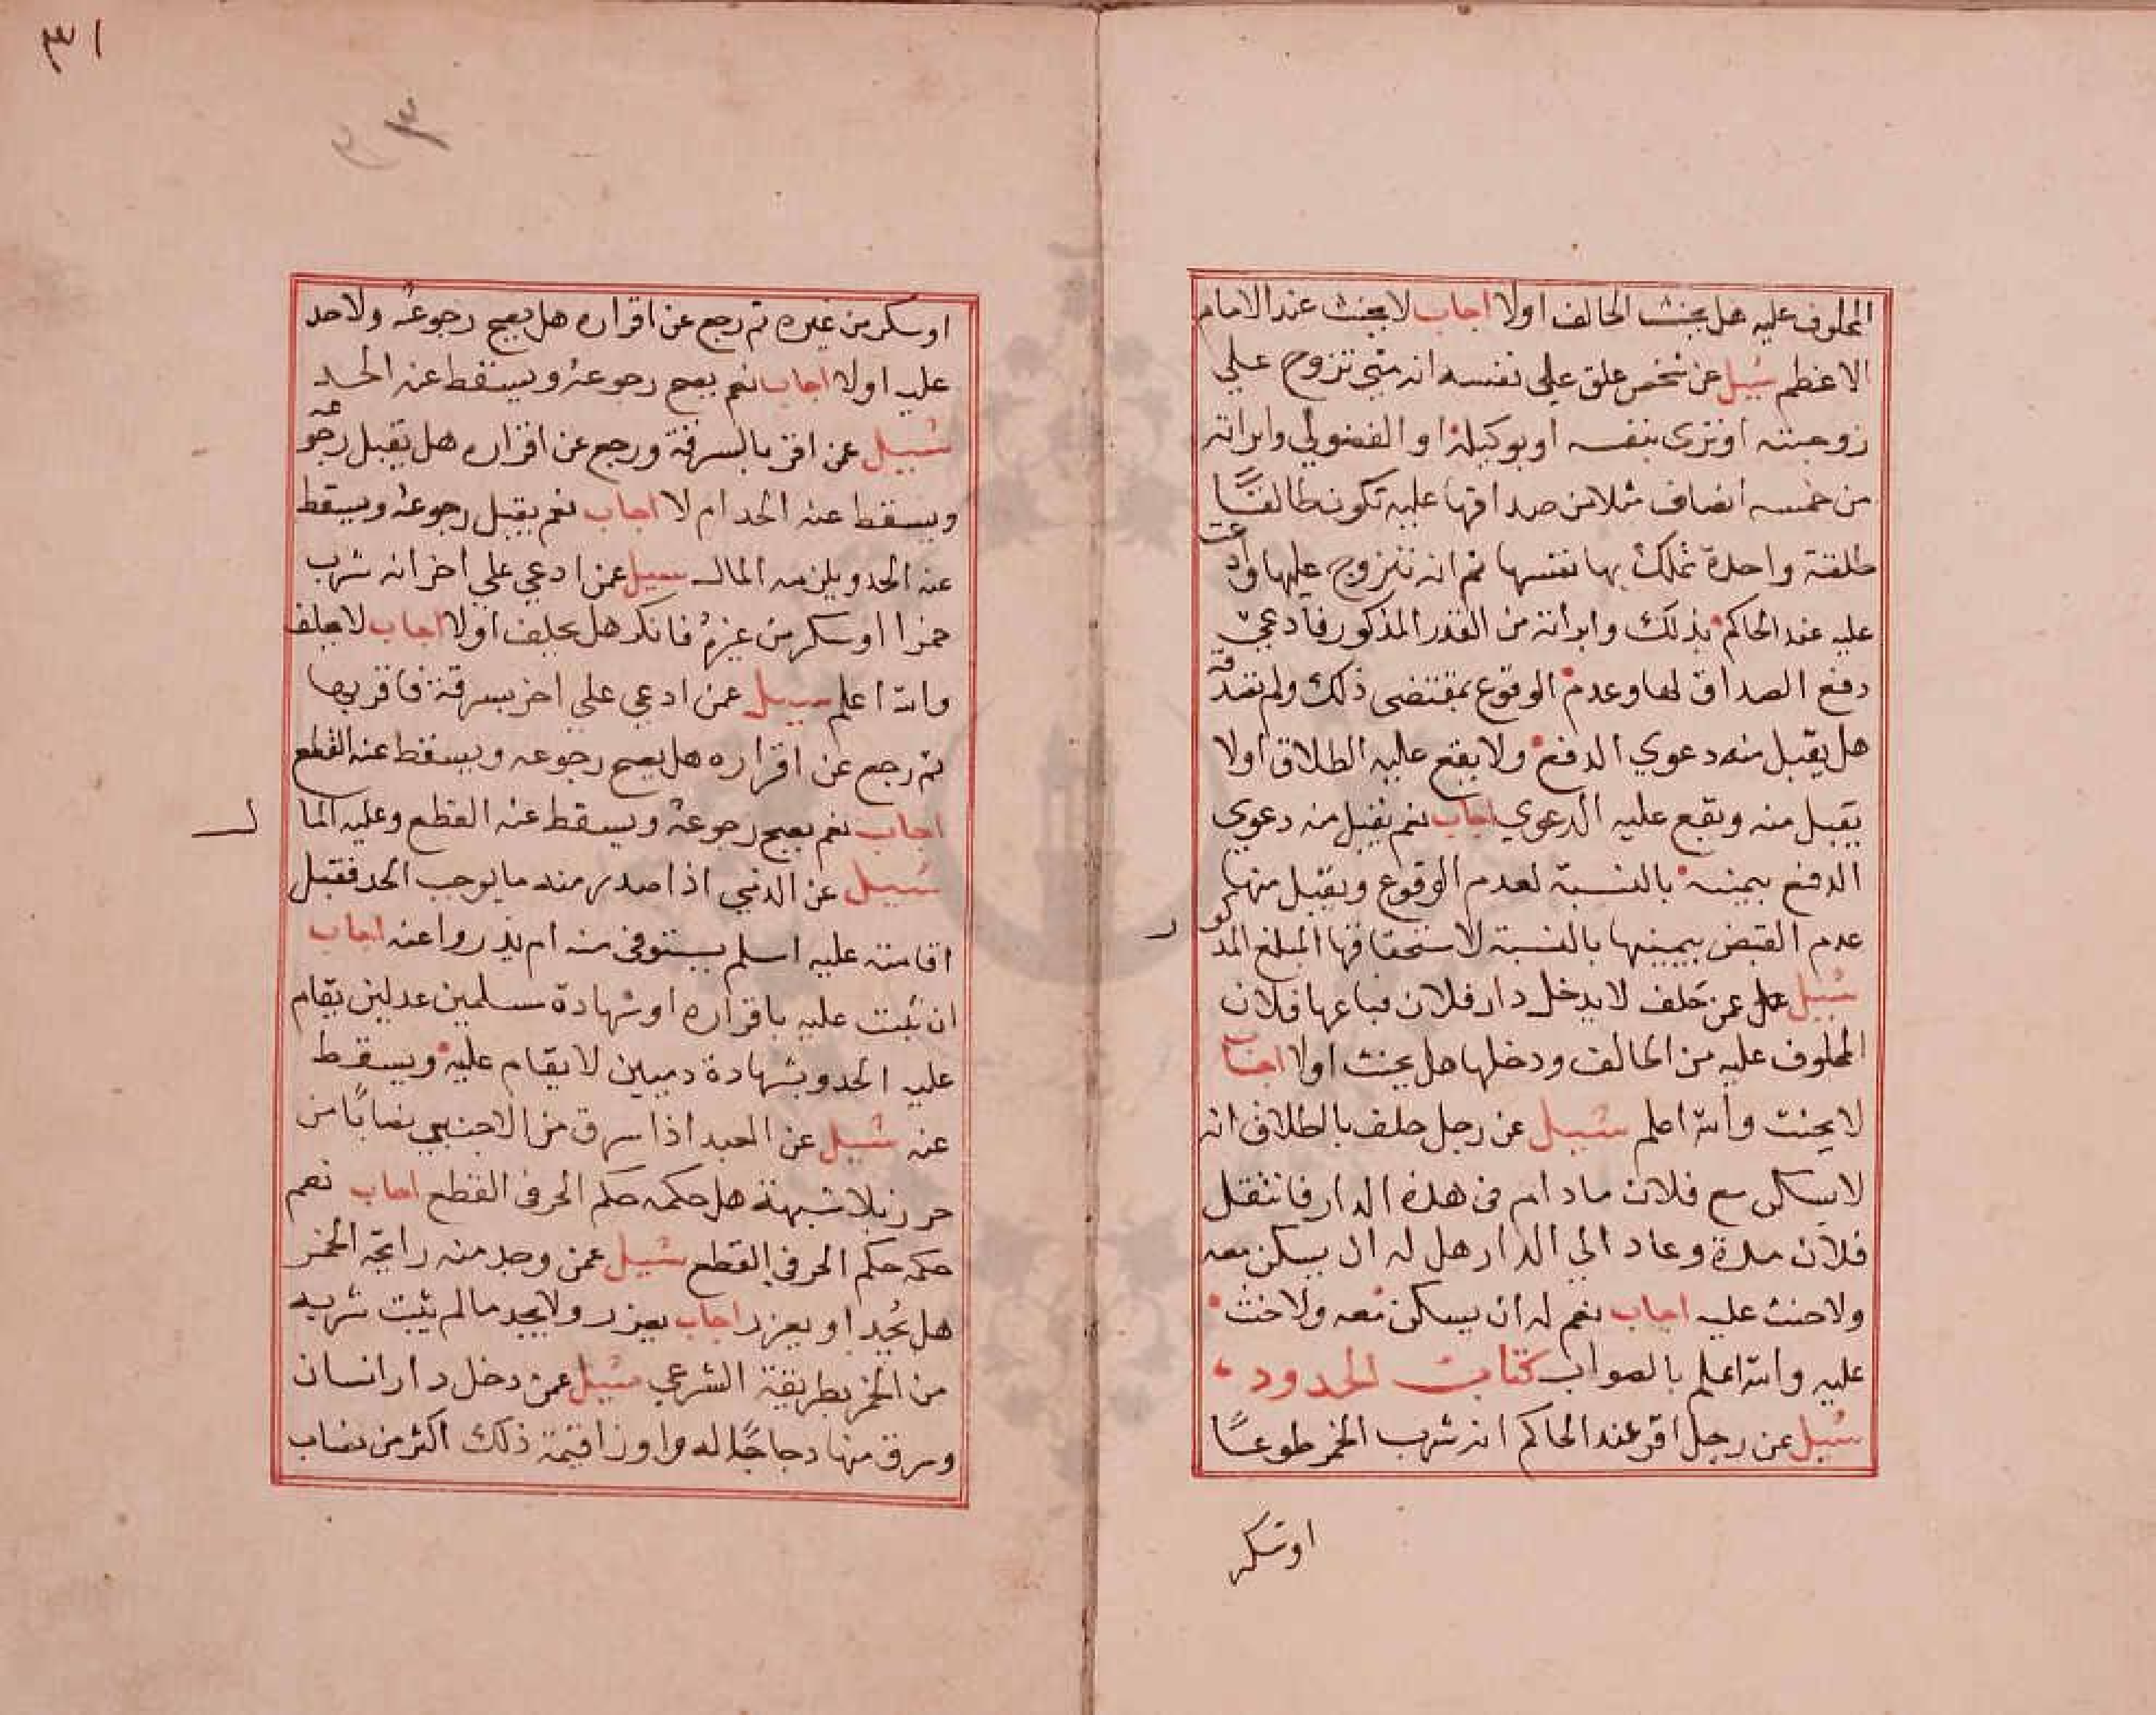 المحلوف عليه هل يحنث الحالف اولا اجاب لا يحنث عند الامام
الاعظم سُيل عن شخص علق علي نفسه انه متي تزوج علي
زوجته او تزي بنفسه او بوكيله او الفضولي وابراته
من خمسه انصاف مثلا من صداقها عليه تكون طالقًا
طلقة واحدة تملك بها نفسها ثم انه تزوج عليها وادعت
عليه عند الحاكم بذلك وابراته من القدر المذكور فادعي
دفع الصداق لها وعدم الوقوع بمقتضى ذلك ولم تصدقه
هل يقبل منه دعوي الدفع ولا يقع عليه الطلاق اولا
يقبل منه ويقع عليه الدعوي اجاب نعم يقبل منه دعوي
الدفع بيمينه بالنسبة لعدم الوقوع ويقبل منها
عدم القبض بيمينها بالنسبة لاستحقاقها المبلغ المذكور
سُيل عمن حلف لا يدخل دار فلان فباعها فلان
المحلوف عليه من الحالف ودخلها هل يحنث اولا اجاب
لا يحنث والله اعلم سُيل عن رجل حلف بالطلاق انه
لا يسكن مع فلان مادام فى هذه الدار فانتقل
فلان مدة وعاد الي الدار هل له ان يسكن معه
ولا حنث عليه اجاب نعم له ان يسكن معه ولا حنث
عليه والله اعلم بالصواب كتاب الحدود
سُيل عن رجل اقر عند الحاكم انه شرب الخمر طوعًا
او سكر
٣١
او سكر من غيره ثم رجع عن اقراره هل يصح رجوعه ولا حد
عليه اولا اجاب نعم يصح رجوعه ويسقط عنه الحد
سُيل عمن اقر بالسرقة ورجع عن اقراره هل يقبل رجوعه
ويسقط عنه الحد ام لا اجاب نعم يقبل رجوعه ويسقط
عنه الحد ويلزمه المال سيل عمن ادعي علي اخر انه شرب
خمرا او سكر من غيره فانكر هل يحلف اولا اجاب لا يحلف
والله اعلم سيل عمن ادعي على اخر بسرقة فاقر بها
ثم رجع عن اقراره هل يصح رجوعه ويسقط عنه القطع
اجاب نعم يصح رجوعه ويسقط عنه القطع وعليه المال
سُيل عن الذمي اذا صدر منه ما يوجب الحد فقبل
اقامته عليه اسلم يستوفى منه ام يدروا عنه اجاب
ان ثبت عليه باقراره او شهادة مسلمين عدلين يقام
عليه الحد وبشهادة دميين لا يقام عليه ويسقط
عنه سُيل عن العبد اذا سرق من الاجنبي نصابًا من
حرز بلا شبهة هل حكمه حكم الحر فى القطع اجاب نعم
حكمه حكم الحر في القطع سُيل عمن وجد منه رايحة الخمر
هل يُحد او يعزر اجاب يعزر ولا يحد مالم يثبت شربه
من الخمر بطريقة الشرعي سُيل عمن دخل دار انسان
وسرق منها دجاجًا له واوزا قيمة ذلك اكثر من نصاب